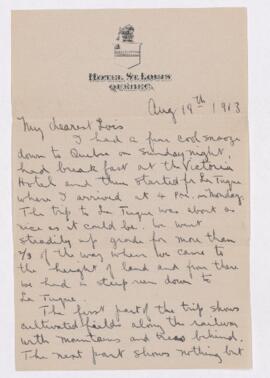 HOTEL ST. LOUIS
QUEBEC.
Aug 19th 1913
My dearest Lois
I had a fine cool snooze
down to Quebec on Sunday night,
had breakfast at the Victoria
Hotel and then started for La Tuque
where I arrived at 4 P.M. on Monday.
The trip to La Tuque was about as
nice as it could be. We went
steadily up grade for more than
2/3 of the way when we came to
the height of land and from there
we had a steep run down to
La Tuque.
The first part of the trip shows
cultivated fields along the railway
with mountains and trees behind.
The next part shows nothing but